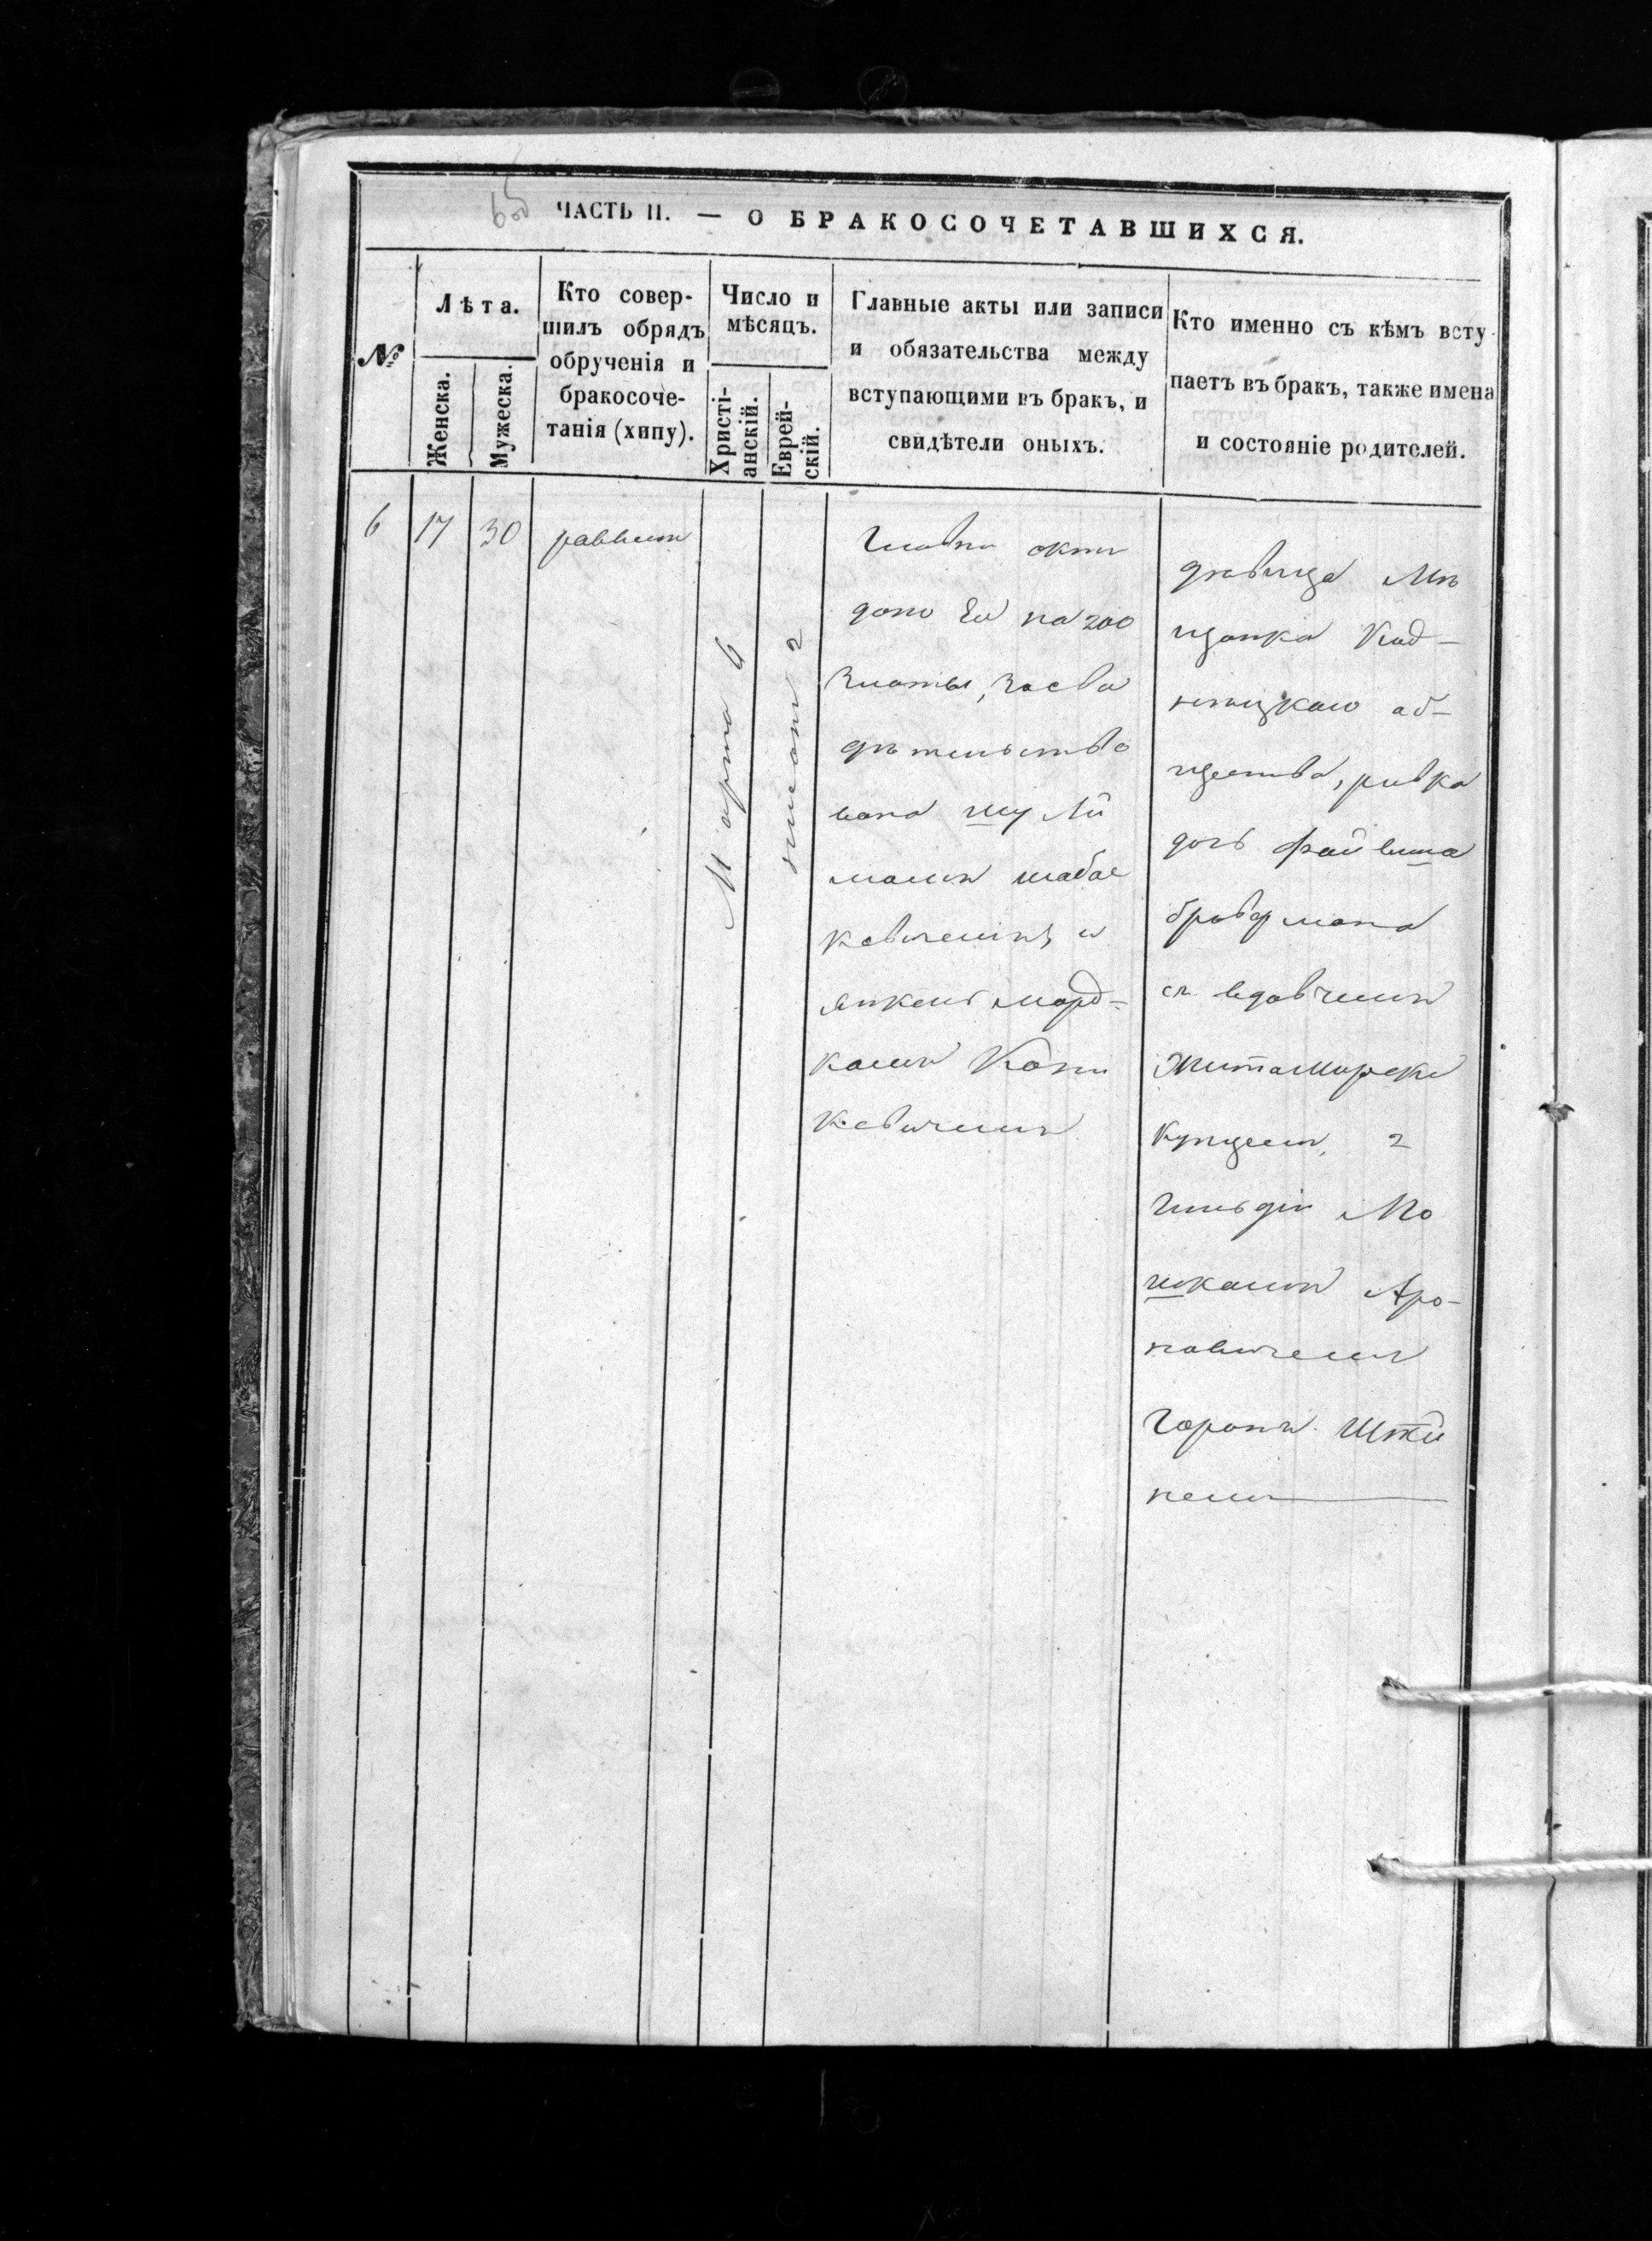 ЧАСТЬ II. — О БРАКОСОЧЕТАВШИХСЯ.
№
Лѣта.
Женска.
Мужеска.
Кто совер-
шилъ обрядъ
обрученія и
бракосоче-
танія (хипу).
Число и
мѣсяцъ.
Христі-
анскій.
Еврей-
скій.
Главные акты или записи
и обязательства между
вступающими въ бракъ, и
свидѣтели оныхъ.
Кто именно съ кѣмъ всту-
паетъ въ бракъ, также имена
и состояніе родителей.
6
17
30
раввинъ
Марта 4
нисанъ 2
Главни акти
дано Ей на 200
Злоты, Засви
дѣтельство
вана шулй
маши
кевичемъ и
янкель морд-
комъ
кевичемъ
дѣвица Мѣ
щанка Кад-
об-
щества, ривка
дочь файвиша
бравермана
съ вдовчемъ
Житамирски
купцемъ, 2
Гильдіи Мо
шкомъ Аро-
новичемъ
Горонъ Штей
немъ